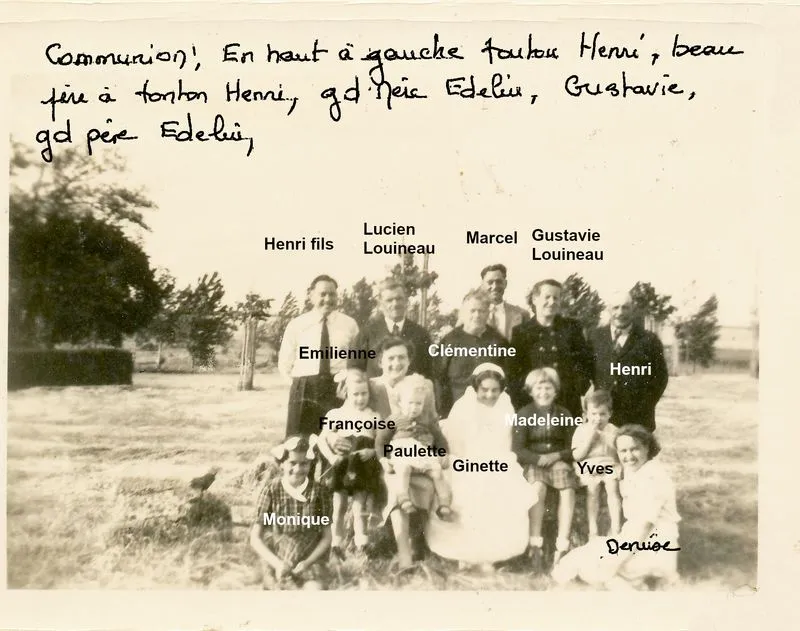 Communion! En haut à gauche tonton Henri, beau
père à tonton Henri, gd Edelin, Gustavie,
gd père Edelin,
Henri fils
Lucien
Louineau
Marcel
Gustavie
Louineau
Emilienne
Clémentine
Henri
Françoise
Madeleine
Paulette
Ginette
Yves
Monique
Denise